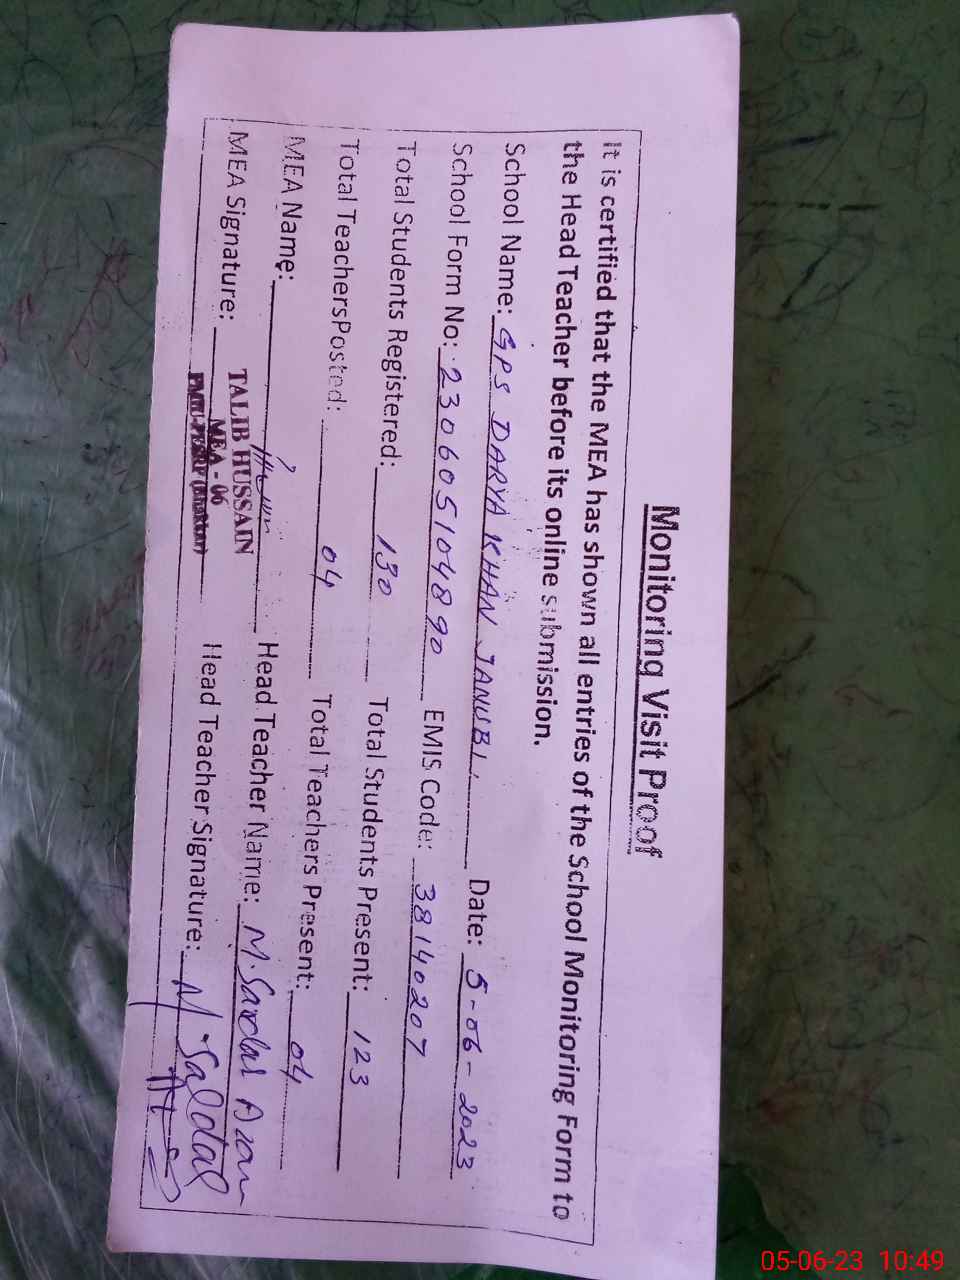 Monitoring Visit Proof
It is certified that the MEA has shown all entries of the School Monitoring Form to
the Head Teacher before its online submission.
School Name: GPS DARYA KHAN JANUBI. Date: 5-06-2023
School Form No: 230605104890 EMIS Code: 38140207
Total Students Registered: 130 Total Students Present: 123
Total TeachersPosted: 04 Total Teachers Present: 04
MEA Name: Head Teacher Name: M. Sardar
MEA Signature: Head Teacher Signature: M. Sardar
TALIB HUSSAIN
MEA - 06
05-06-23 10:49